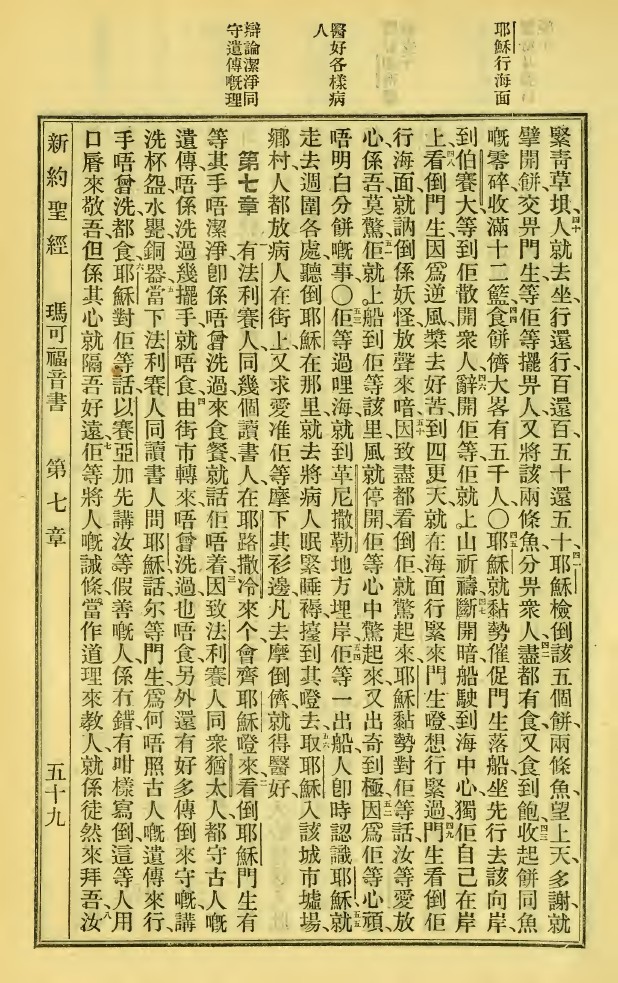 耶穌行海面
醫好各樣病
人
辯論潔淨同
守遺傳嘅理
緊青草垻人就去坐行還行百還百五十還五十耶穌檢倒該五個餅兩條魚望上天多謝就
擘開餅交畀門生等佢等擺畀人又將該兩條魚分畀衆人盡都有食又食到飽收起餅同魚
嘅零碎收滿十二籃食餅儕大畧有五千人〇耶穌就黏勢催促門生落船坐先行去該向岸
到伯賽大等到佢散開衆人辭開佢等佢就上山祈禱斷開暗船駛到海中心獨佢自己在岸
上看倒門生因爲逆風槳去好苦到四更天就在海面行緊來門生噔想行緊過門生看倒佢
行海面就訥倒係妖怪放聲來喑因致盡都看倒佢就驚起來耶穌黏勢對佢等話汝等愛放
心係吾莫驚佢就上船到佢等該里風就停開佢等心中驚起來又出奇到極因爲佢等心頑
唔明白分餅嘅事〇佢等過哩海就到革尼撒勒地方埋岸佢等一出船人卽時認識耶穌就
走去週圍各處聽倒耶穌在那里就去將病人眠緊睡褥擡到其噔去取耶穌入該城市墟場
鄉村人都放病人在街上又求愛准佢等摩下其衫邊凡去摩倒儕就得醫好
第七章 有法利賽人同幾個讀書人在耶路撒冷來个會齊耶穌噔來看倒耶穌門生有
等其手唔潔淨卽係唔曾洗過來食餐就話佢唔着因致法利賽人同衆猶太人都守古人嘅
遺傳唔係洗過幾擺手就唔食由街市轉來唔曾洗過也唔食另外還有好多傳倒來守嘅講
洗杯盌水罌銅器當下法利賽人同讀書人問耶穌話尔等門生爲何唔照古人嘅遺傳來行
手唔曾洗都食耶穌對佢等話以賽亞加先講汝等假善嘅人係冇錯有咁樣寫倒這等人用
口脣來敬吾但係其心就隔吾好遠佢等將人嘅誡條當作道理來教人就係徒然來拜吾汝
新約聖經 瑪可福音書 第七章 五十九